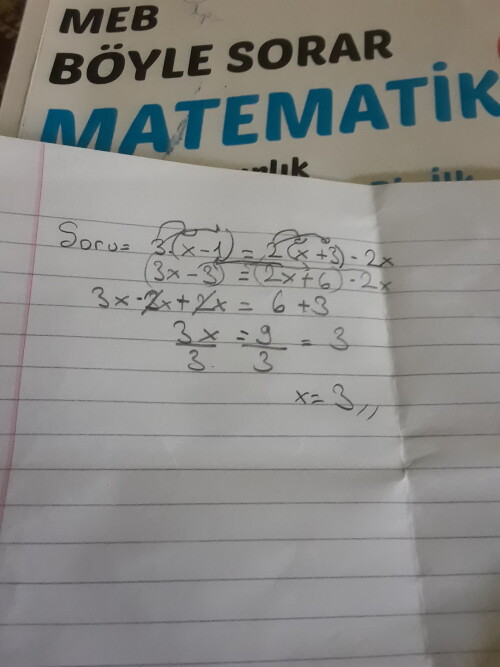 MEB
BÖYLE SORAR
MATEMATİK
Soru= 3.(x-1) = 2(x+3)-2x
(3x-3) = (2x+6)-2x
3x-2x+2x = 6+3
3x/3 = 9/3 = 3
x=3,,